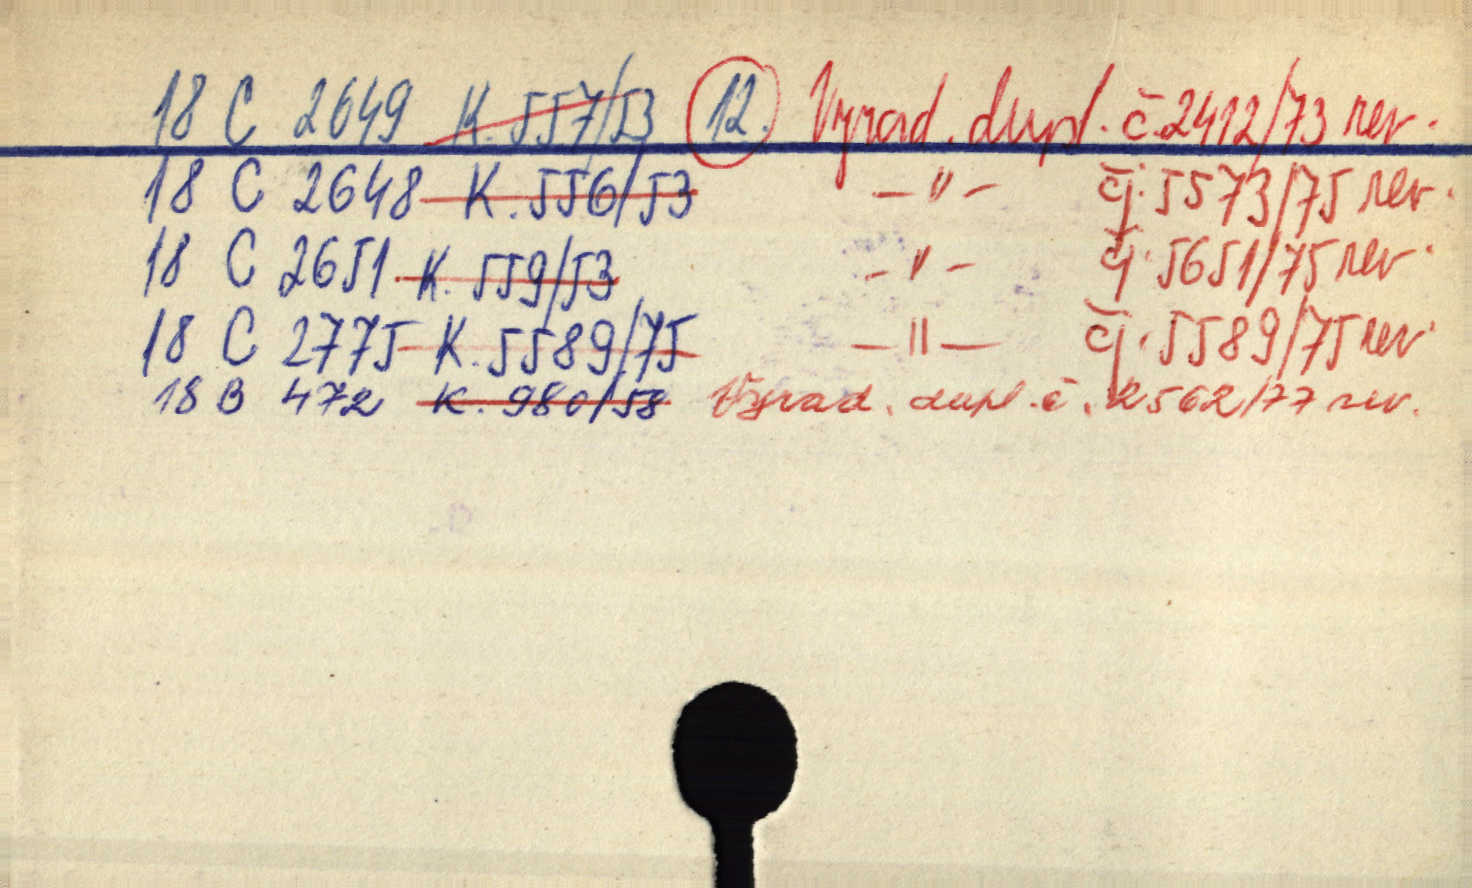 18 C 2649 K. 557/53 12. Vyřad. dupl. č. 2412/73 rev.
18 C 2648 K. 556/53 – " – čj. 5573/75 rev.
18 C 2651 K. 559/53 – " – čj. 5651/75 rev.
18 C 2775 K. 5589/75 – " – čj. 5589/75 rev.
18 B 472 K. 980/58 Vyřad. dupl. č. 2562/77 rev.